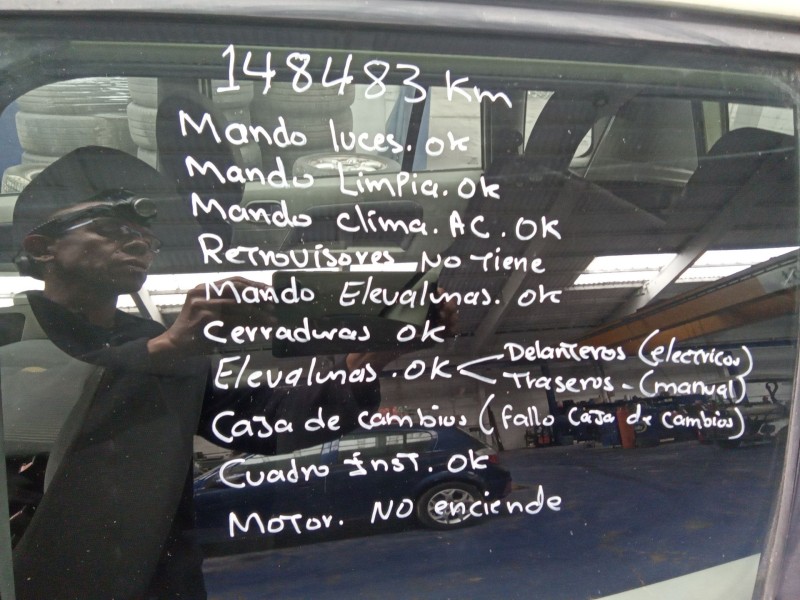 148483 Km
Mando luces. OK
Mando Limpia. OK
Mando clima. AC. OK
Retrovisores No Tiene
Mando Elevalunas. OK
Cerraduras OK
Elevalunas. OK < Delanteros (electricos)
Traseros - (manual)
Caja de cambios (fallo caja de cambios)
Cuadro Inst. OK
Motor. NO enciende